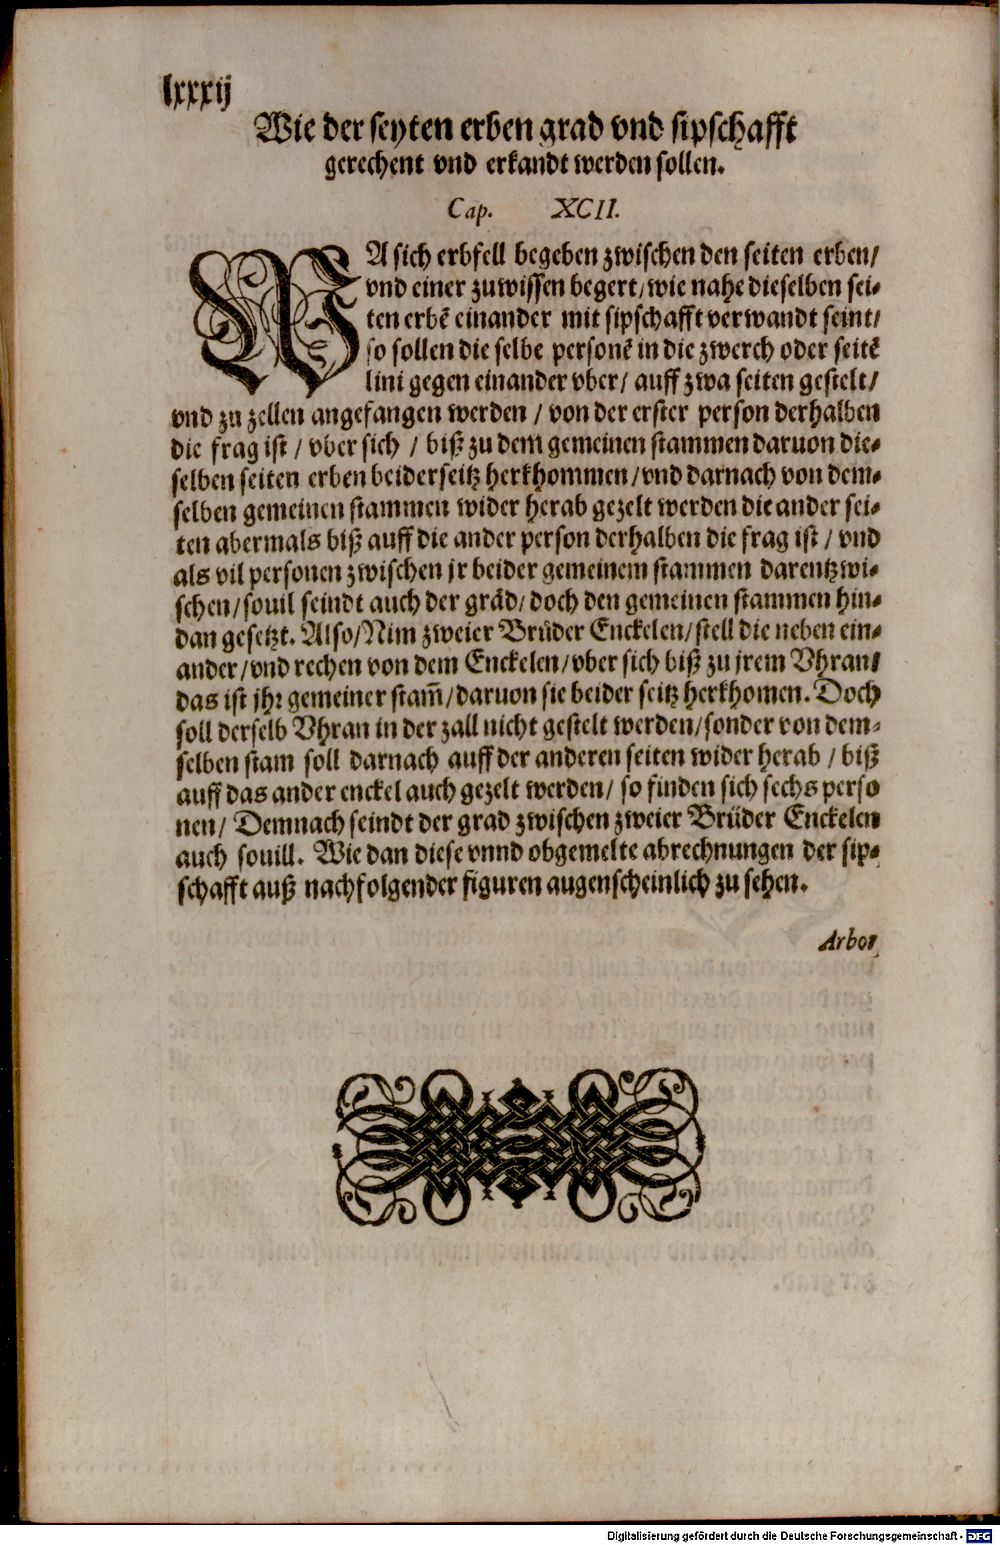 lxxxij
Wie der seyten erben grad vnd sipschafft
gerechent vnd erkandt werden sollen.
Cap. XCII.
WA sich erbfell begeben zwischen den seiten erben/
vnd einer zuwissen begert/wie nahe dieselben sei-
ten erbẽ einander mit sipschafft verwandt seint/
so sollen die selbe personẽ in die zwerch oder seitẽ
lini gegen einander vber/ auff zwa seiten gestelt/
vnd zu zellen angefangen werden / von der erster person derhalben
die frag ist / vber sich / biß zu dem gemeinen stammen daruon die-
selben seiten erben beiderseitz herkhommen/vnd darnach von dem-
selben gemeinen stammen wider herab gezelt werden die ander sei-
ten abermals biß auff die ander person derhalben die frag ist / vnd
als vil personen zwischen jr beider gemeinem stammen darentzwi-
schen/souil seindt auch der gräd/doch den gemeinen stammen hin-
dan gesetzt. Also/Nim zweier Brüder Enckelen/stell die neben ein-
ander/vnd rechen von dem Enckelen/vber sich biß zu jrem Vhran/
das ist jhr gemeiner stam̃/daruon sie beider seitz herkhomen. Doch
soll derselb Vhran in der zall nicht gestelt werden/sonder von dem-
selben stam soll darnach auff der anderen seiten wider herab / biß
auff das ander enckel auch gezelt werden/ so finden sich sechs perso
nen/ Demnach seindt der grad zwischen zweier Brüder Enckelen
auch souill. Wie dan diese vnnd obgemelte abrechnungen der sip-
schafft auß nachfolgender figuren augenscheinlich zu sehen.
Arbor
Digitalisierung gefördert durch die Deutsche Forschungsgemeinschaft - DFG